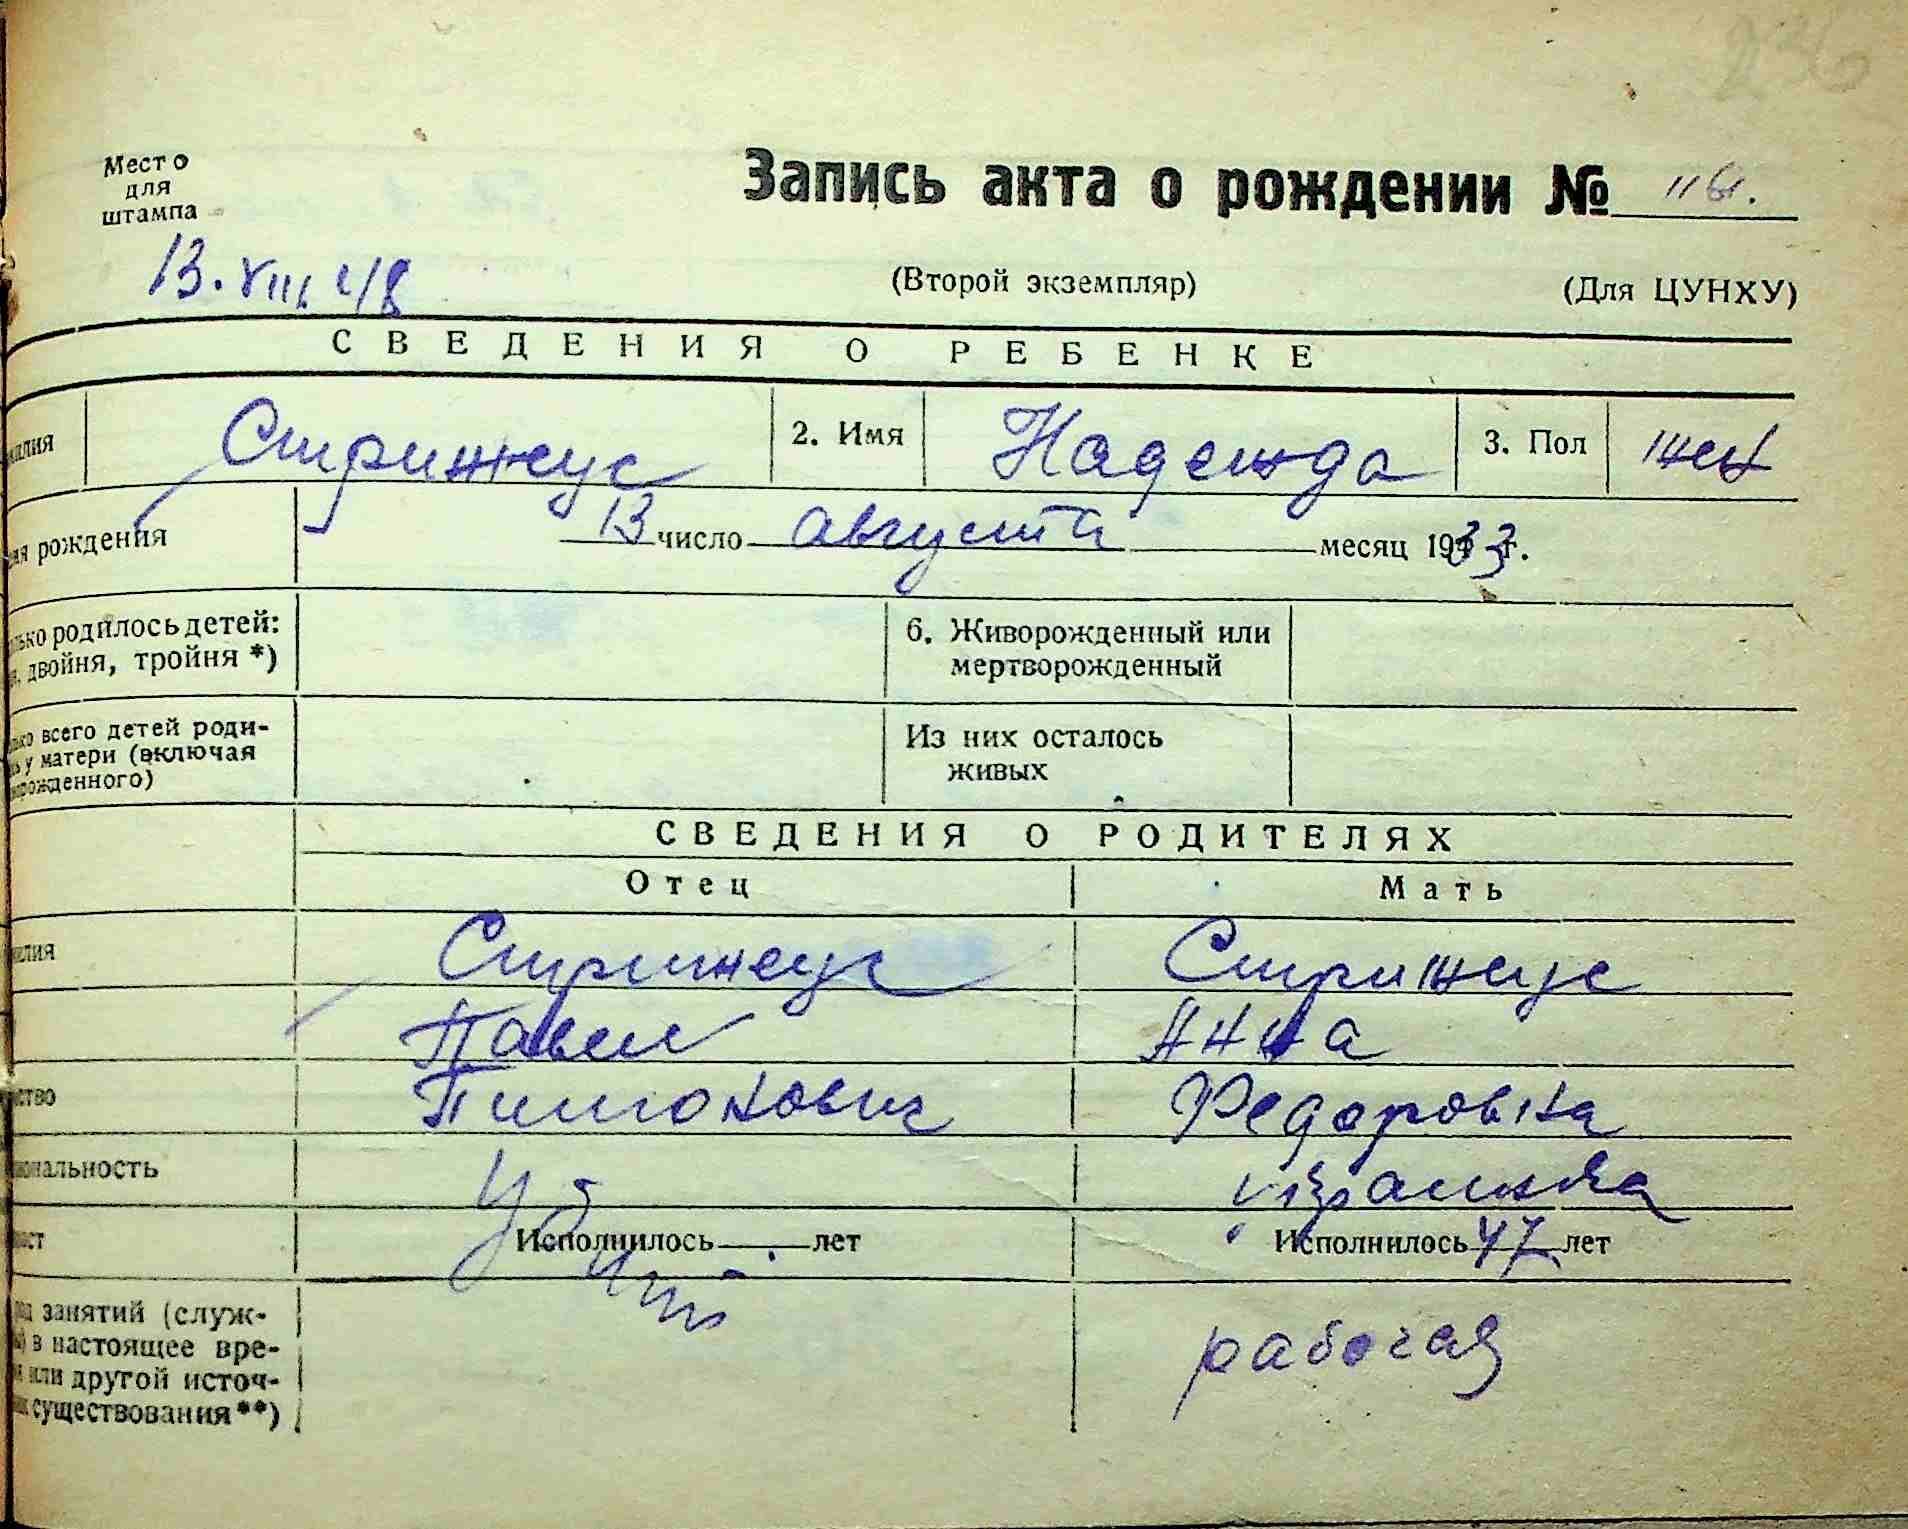 236
Место
для
штампа
Запись акта о рождении №
13.VIII 48
(Второй экземпляр)
(Для ЦУНХУ)
СВЕДЕНИЯ О РЕБЕНКЕ
милия Стрижеус 2. Имя Надежда 3. Пол жен
мя рождения 13 число августа месяц 1933 г.
лько родилось детей:
двойня, тройня *)
6. Живорожденный или
мертворожденный
лько всего детей роди-
сь у матери (включая
ворожденного)
Из них осталось
живых
СВЕДЕНИЯ О РОДИТЕЛЯХ
Отец Мать
милия Стрижеус Стрижеус
Павел Анна
ество Пимонович Федоровна
иональность украинка
раст Исполнилось лет Исполнилось 47 лет
од занятий (служ-
в настоящее вре-
или другой источ-
ник существования **)
рабочая